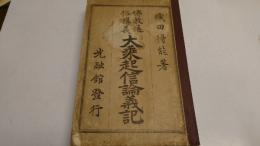 織田得能著
佛教通俗講義
大乘起信論義記
光融館發行